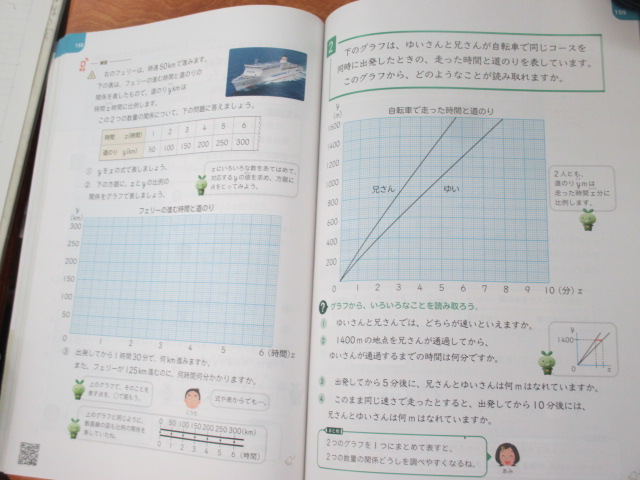 右のフェリーは、時速50kmで進みます。
下の表は、フェリーの進む時間と道のりの
関係を表したもので、道のりykmは
時間x時間に比例します。
この2つの数量の関係について、下の問題に答えましょう。
時間 x(時間) 1 2 3 4 5 6
道のり y(km) 50 100 150 200 250 300
① yをxの式で表しましょう。
② 下の方眼に、xとyの比例の
関係をグラフで表しましょう。
xにいろいろな数をあてはめて、
対応するyの値を求め、方眼に
点をとってみよう。
フェリーの進む時間と道のり
y
(km)
300
250
200
150
100
50
0 1 2 3 4 5 6 (時間) x
③ 出発してから1時間30分で、何km進みますか。
また、フェリーが125km進むのに、何時間何分かかりますか。
上のグラフで、そのことを
表す点を、○で囲もう。
式や表からでも…。
上のグラフと同じように、
数直線の図も比例の関係を
表していたね。
0 50 100 150 200 250 300(km)
0 1 2 3 4 5 6 (時間)
2
下のグラフは、ゆいさんと兄さんが自転車で同じコースを
同時に出発したときの、走った時間と道のりを表しています。
このグラフから、どのようなことが読み取れますか。
自転車で走った時間と道のり
y
(m)
1600
1400
1200
1000
800
600
400
200
0 1 2 3 4 5 6 7 8 9 10 (分) x
兄さん
ゆい
2人とも、
道のりymは
走った時間x分に
比例します。
? グラフから、いろいろなことを読み取ろう。
① ゆいさんと兄さんでは、どちらが速いといえますか。
② 1400mの地点を兄さんが通過してから、
ゆいさんが通過するまでの時間は何分ですか。
y
1400
0
x
③ 出発してから5分後に、兄さんとゆいさんは何mはなれていますか。
④ このまま同じ速さで走ったとすると、出発してから10分後には、
兄さんとゆいさんは何mはなれていますか。
まとめ
2つのグラフを1つにまとめて表すと、
2つの数量の関係どうしを調べやすくなるね。
あみ